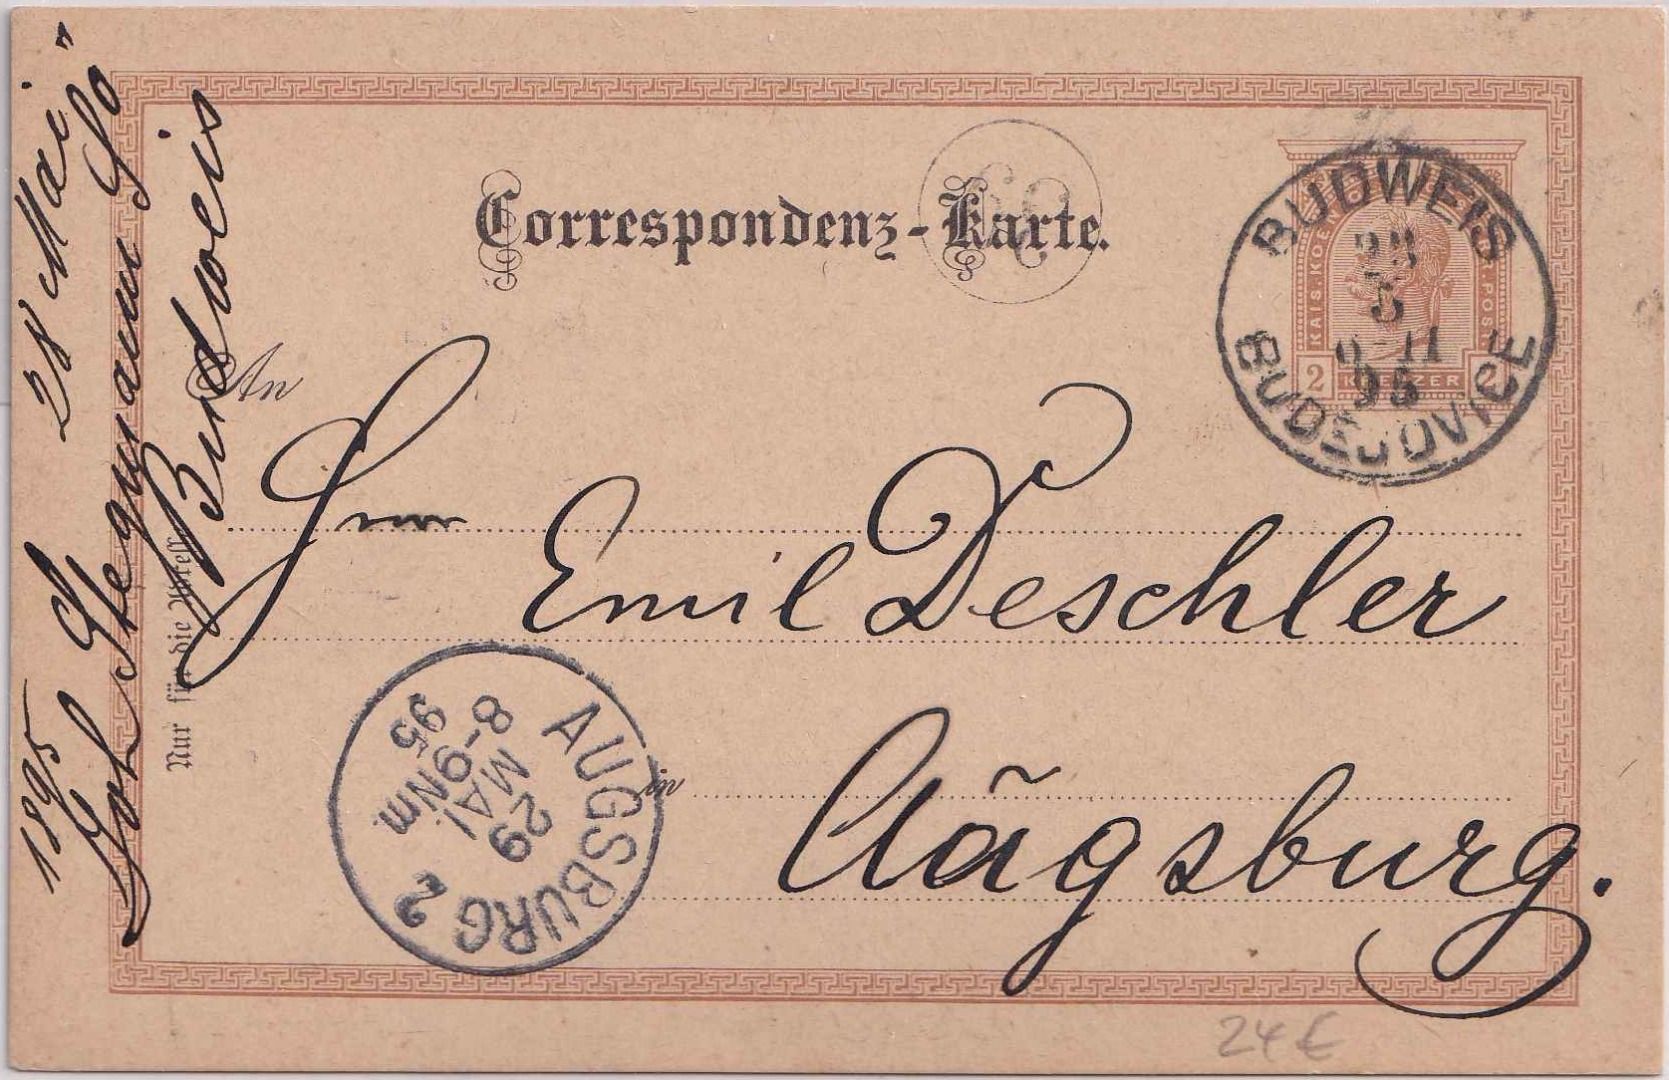 Correspondenz-Karte.
An
Herrn
Emil Deschler
in
Aūgsburg.
Nur für die Adresse
1895 28 Mai
Joh Stegmann So
Budweis
BUDWEIS
28
5
95
BUDĚJOVICE
KAIS. KOEN
POST
2 KREUZER 2
AUGSBURG 2
29
MAI.
8-9 Nm.
95
24 €